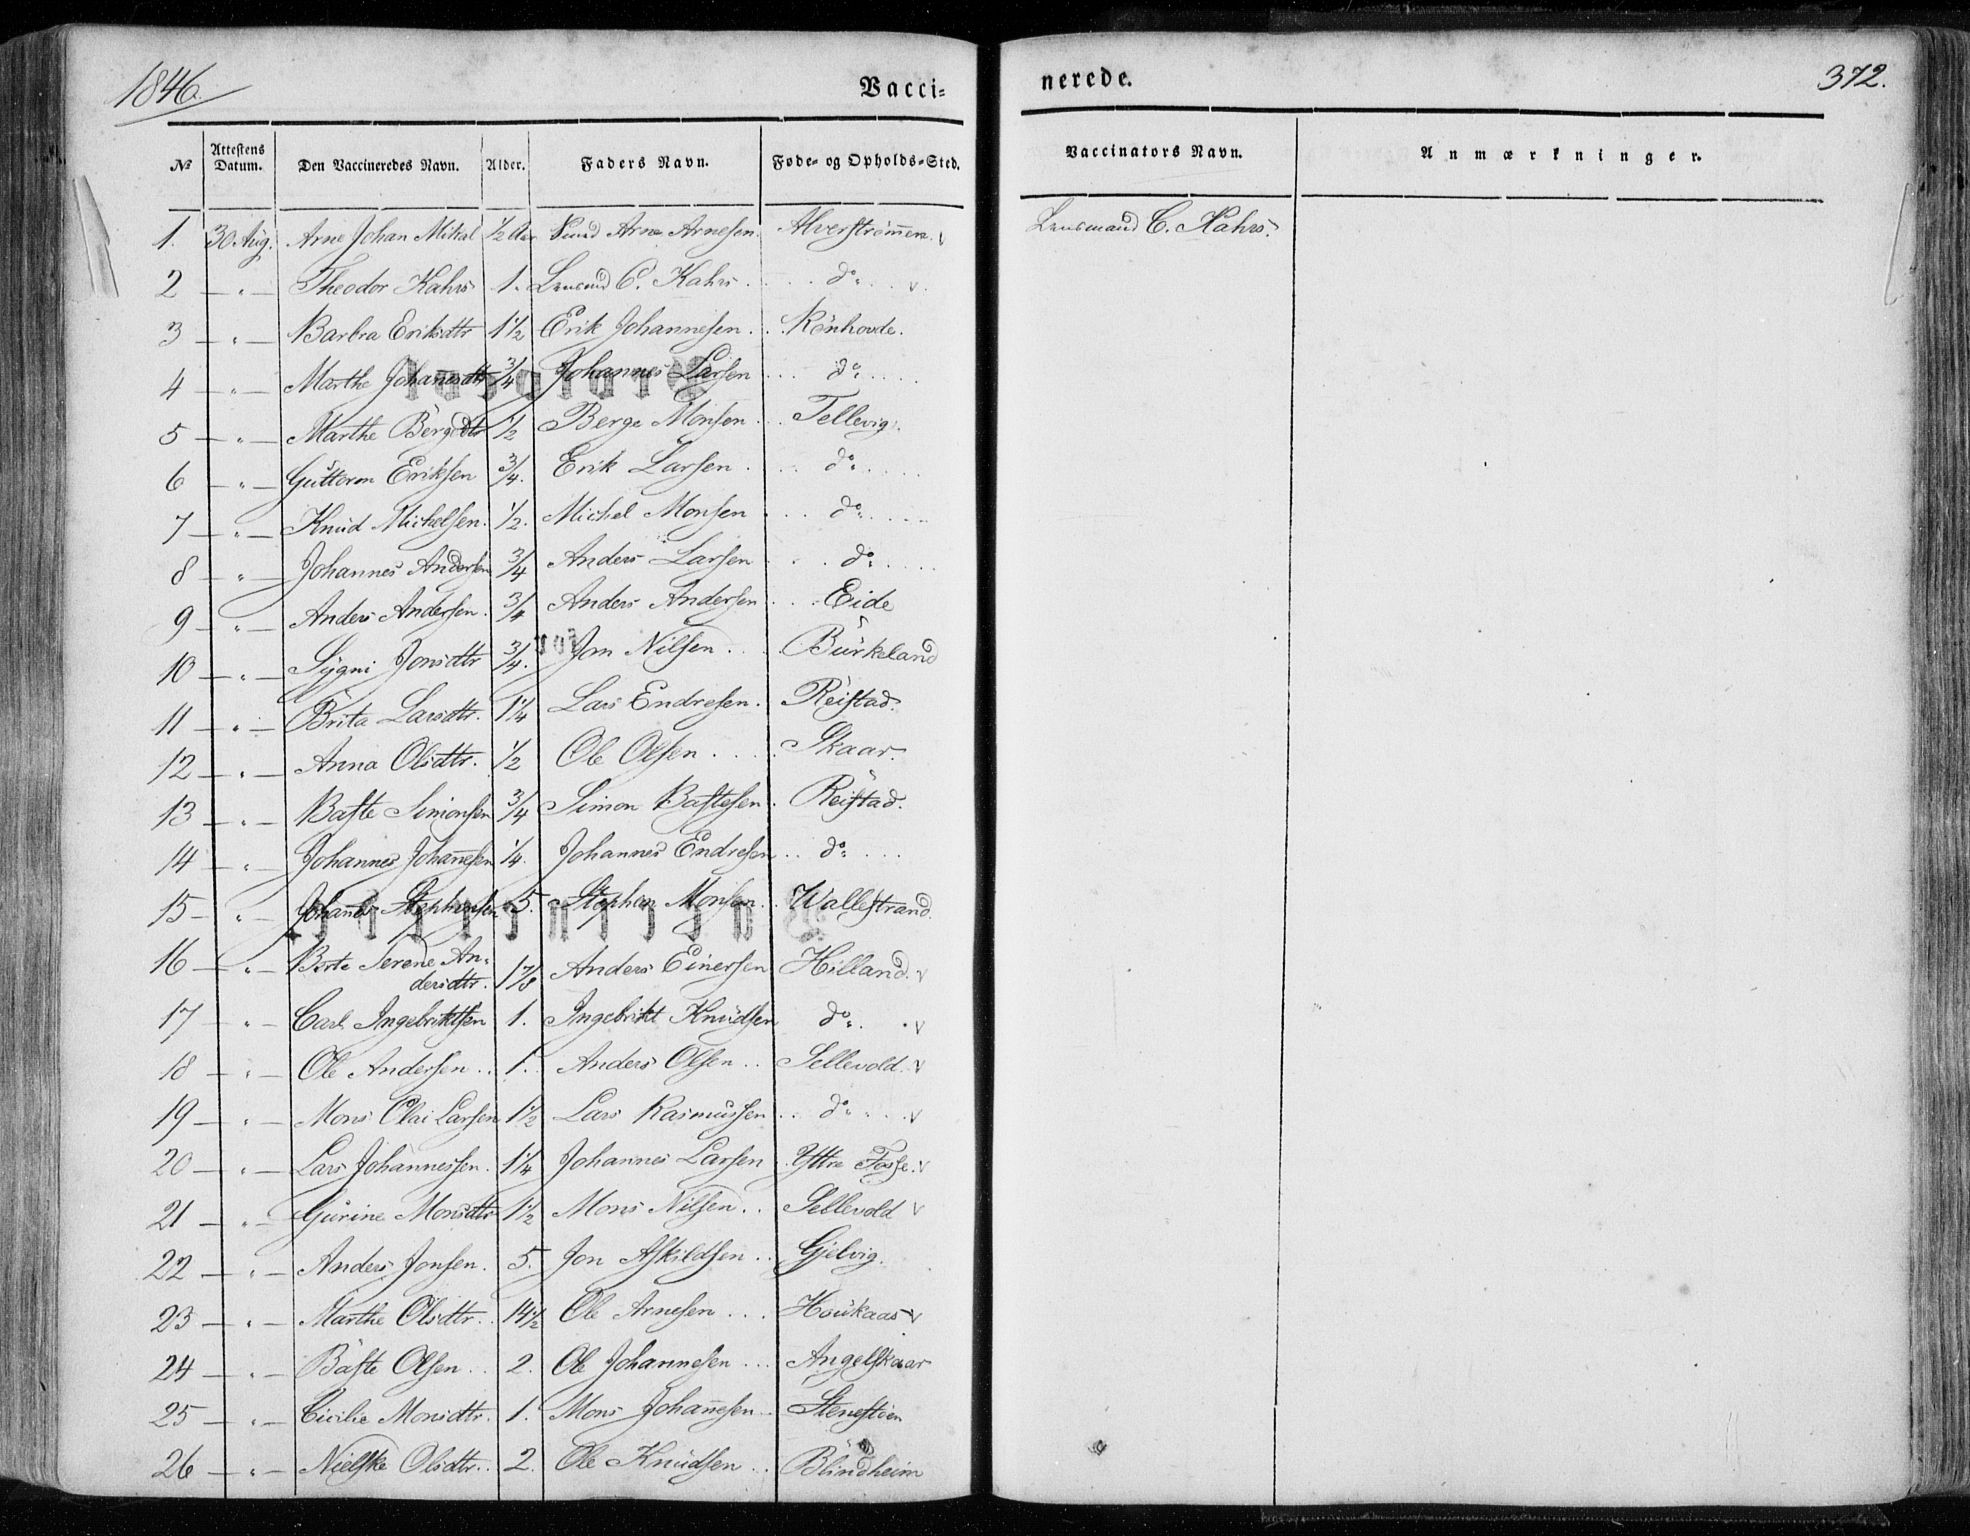 1846.
Vacci=
nerede.
372.
№ Attestens Datum. Den Vaccineredes Navn. Alder. Faders Navn. Føde- og Opholds-Sted. Vaccinators Navn. Anmærkninger.
1. 30 Aug. Arne Johan Mikal 1/2 Arne Arnesen. Alverstrømmen. v Lensmand C. Kahrs.
2 — " — Theodor Kahrs 1. Lensmd C. Kahrs . . . do . . v.
3 — " — Barbra Eriksdtr 1 1/2 Erik Johannesen . . Rönhovde.
4 — " — Marthe Johannesdtr 3/4 Johannes Larsen . . . do . . . .
5 — " — Marthe Bergesdtr 1/2 Berge Monsen . . Tellevig.
6 — " — Gutterm Eriksen 3/4. Erik Larsen . . . do . . . .
7 — " — Knud Michelsen. 1/2. Michel Monsen . . . do . . . .
8 — " — Johannes Andersen 3/4 Anders Larsen . . . do . . . .
9 — " — Anders Andersen. 3/4 Anders Andersen . . . Eide
10 — " — Sygni Jonsdtr 3/4. Jon Nilsen . . Bürkeland
11 — " — Brita Larsdtr. 1 1/4 Lars Endresen. Reistad.
12 — " — Anna Olsdtr. 1/2 Ole Olsen . . . . Skaar.
13 — " — Baste Simonsen 3/4 Simon Bastesen. Reistad.
14 — " — Johannes Johannesen 1/4. Johannes Endresen . . do . . .
15 — " — Johannes Stephensen 5. Stephen Monsen. . Wallestrand.
16 — " — Berte Serene An=
dersdtr. 1 7/8 Anders Einersen Hilland. v
17 — " — Carl Ingebriktsen 1. Ingebrikt Knudsen do . . v
18 — " — Ole Andersen . . 1. Anders Olsen . . Sellevold. v
19 — " — Mons Olai Larsen 1 1/2 Lars Rasmussen . . do . . . v
20 — " — Lars Johannessen. 1 1/4 Johannes Larsen . Yttre Fosse. v
21 — " — Gurine Monsdtr 1 1/2 Mons Nilsen . . Sellevold v
22 — " — Anders Jonsen. 5. Jon Askildsen . . Gjelvig.
23 — " — Marthe Olsdtr. . 14 1/2 Ole Arnesen . . . Houkaas v
24 — " — Baste Olsen . . 2. Ole Johannesen . . . Angelskaar
25 — " — Cicilie Monsdtr. 1. Mons Johannesen . . Stenstöen
26 — " — Nielske Olsdtr. . 2. Ole Knudsen . . Blindheim